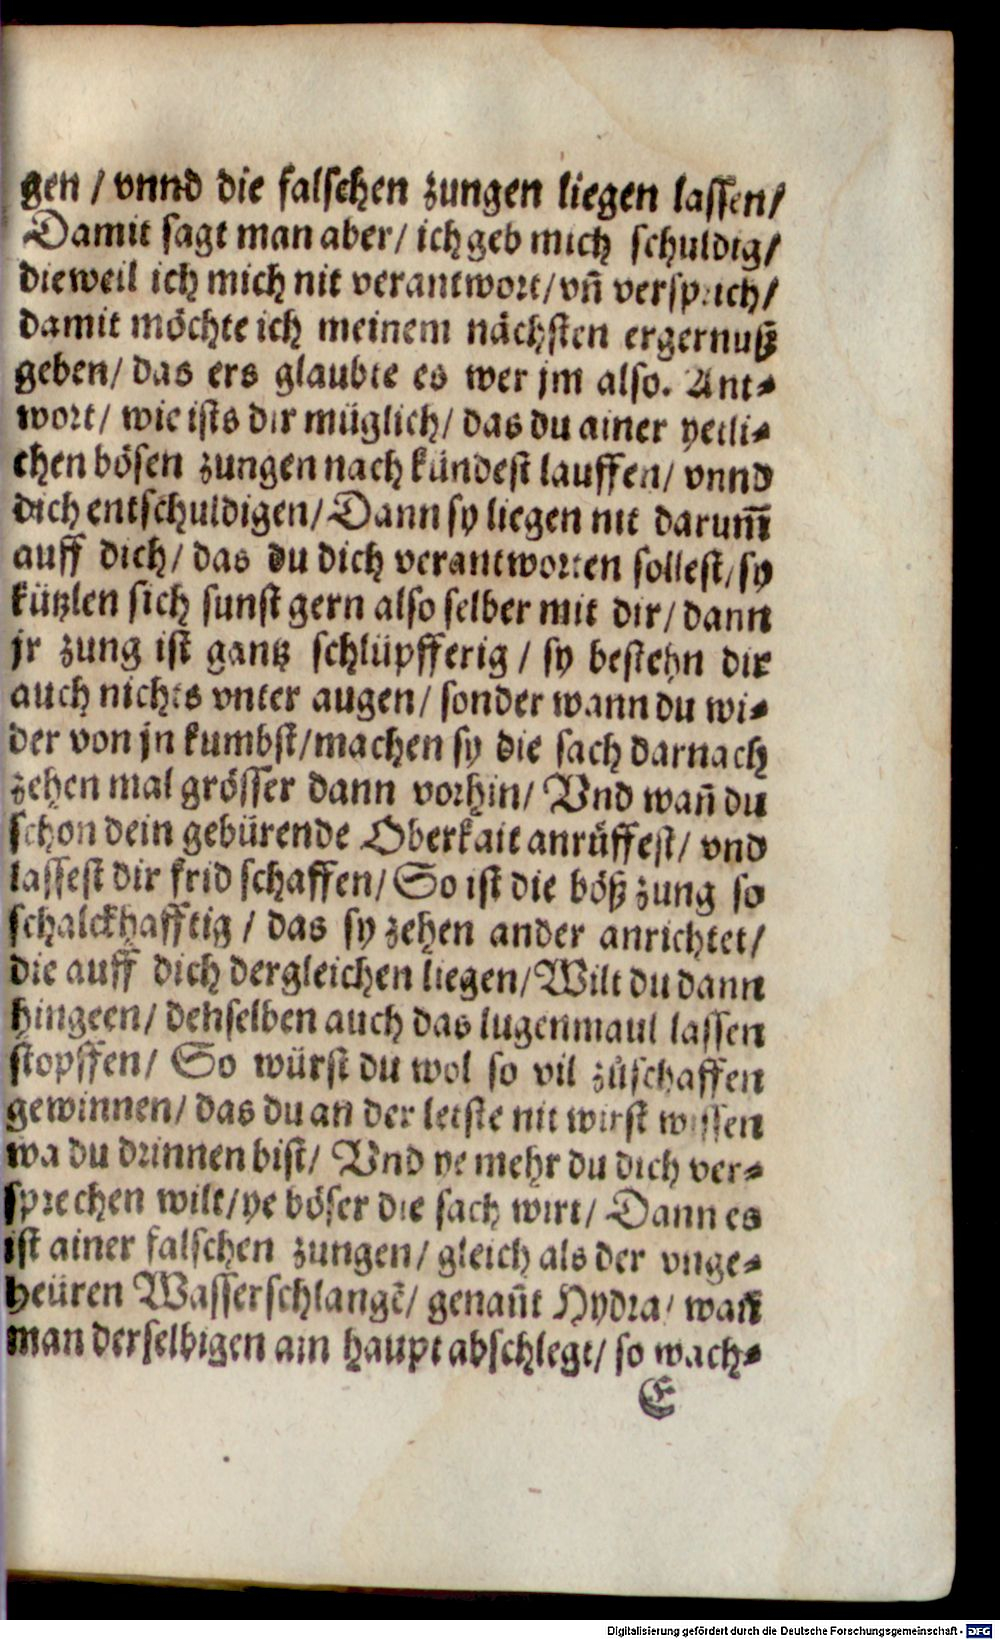 gen / vnnd die falschen zungen liegen lassen/
Damit sagt man aber/ ich geb mich schuldig/
dieweil ich mich nit verantwort/ vñ versprich/
damit möchte ich meinem nächsten ergernuß
geben/ das ers glaubte es wer jm also. Ant⸗
wort/ wie ists dir müglich/ das du ainer yetli⸗
chen bösen zungen nach kündest lauffen/ vnnd
dich entschuldigen/ Dann sy liegen nit darum̃
auff dich/ das du dich verantworten sollest/ sy
kützlen sich sunst gern also selber mit dir/ dann
jr zung ist gantz schlüpfferig / sy bestehn dir
auch nichts vnter augen/ sonder wann du wi⸗
der von jn kumbst/ machen sy die sach darnach
zehen mal grösser dann vorhin/ Vnd wañ du
schon dein gebürende Oberkait anrůffest/ vnd
lassest dir frid schaffen/ So ist die böß zung so
schalckhafftig / das sy zehen ander anrichtet/
die auff dich dergleichen liegen/ Wilt du dann
hingeen/ denselben auch das lugenmaul lassen
stopffen/ So würst du wol so vil zůschaffen
gewinnen/ das du an der letste nit wirst wissen
wa du drinnen bist/ Vnd ye mehr du dich ver⸗
sprechen wilt/ ye böser die sach wirt/ Dann es
ist ainer falschen zungen/ gleich als der vnge⸗
heüren Wasserschlangẽ/ genañt Hydra/ wañ
man derselbigen ain haupt abschlegt/ so wach⸗
E
Digitalisierung gefördert durch die Deutsche Forschungsgemeinschaft - DFG